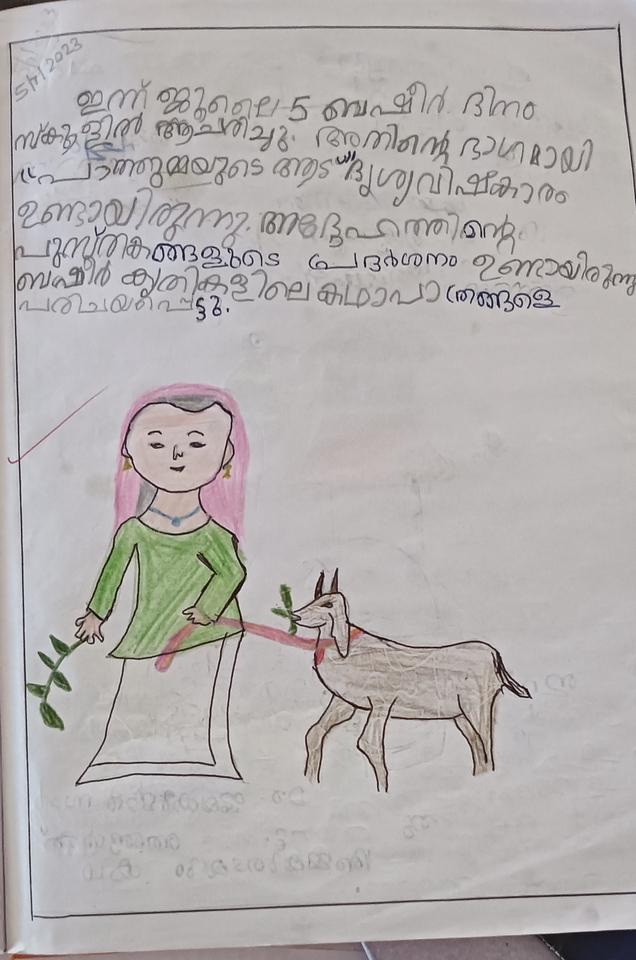 5/7/2023
ഇന്ന് ജൂലൈ 5 ബഷീർ ദിനം
സ്കൂളിൽ ആചരിച്ചു. അതിന്റെ ഭാഗമായി
"പാത്തുമ്മയുടെ ആട്" ദൃശ്യവിഷ്കാരം
ഉണ്ടായിരുന്നു. അദ്ദേഹത്തിന്റെ
പുസ്തകങ്ങളുടെ പ്രദർശനം ഉണ്ടായിരുന്നു
ബഷീർ കൃതികളിലെ കഥാപാത്രങ്ങളെ
പരിചയപ്പെട്ടു.